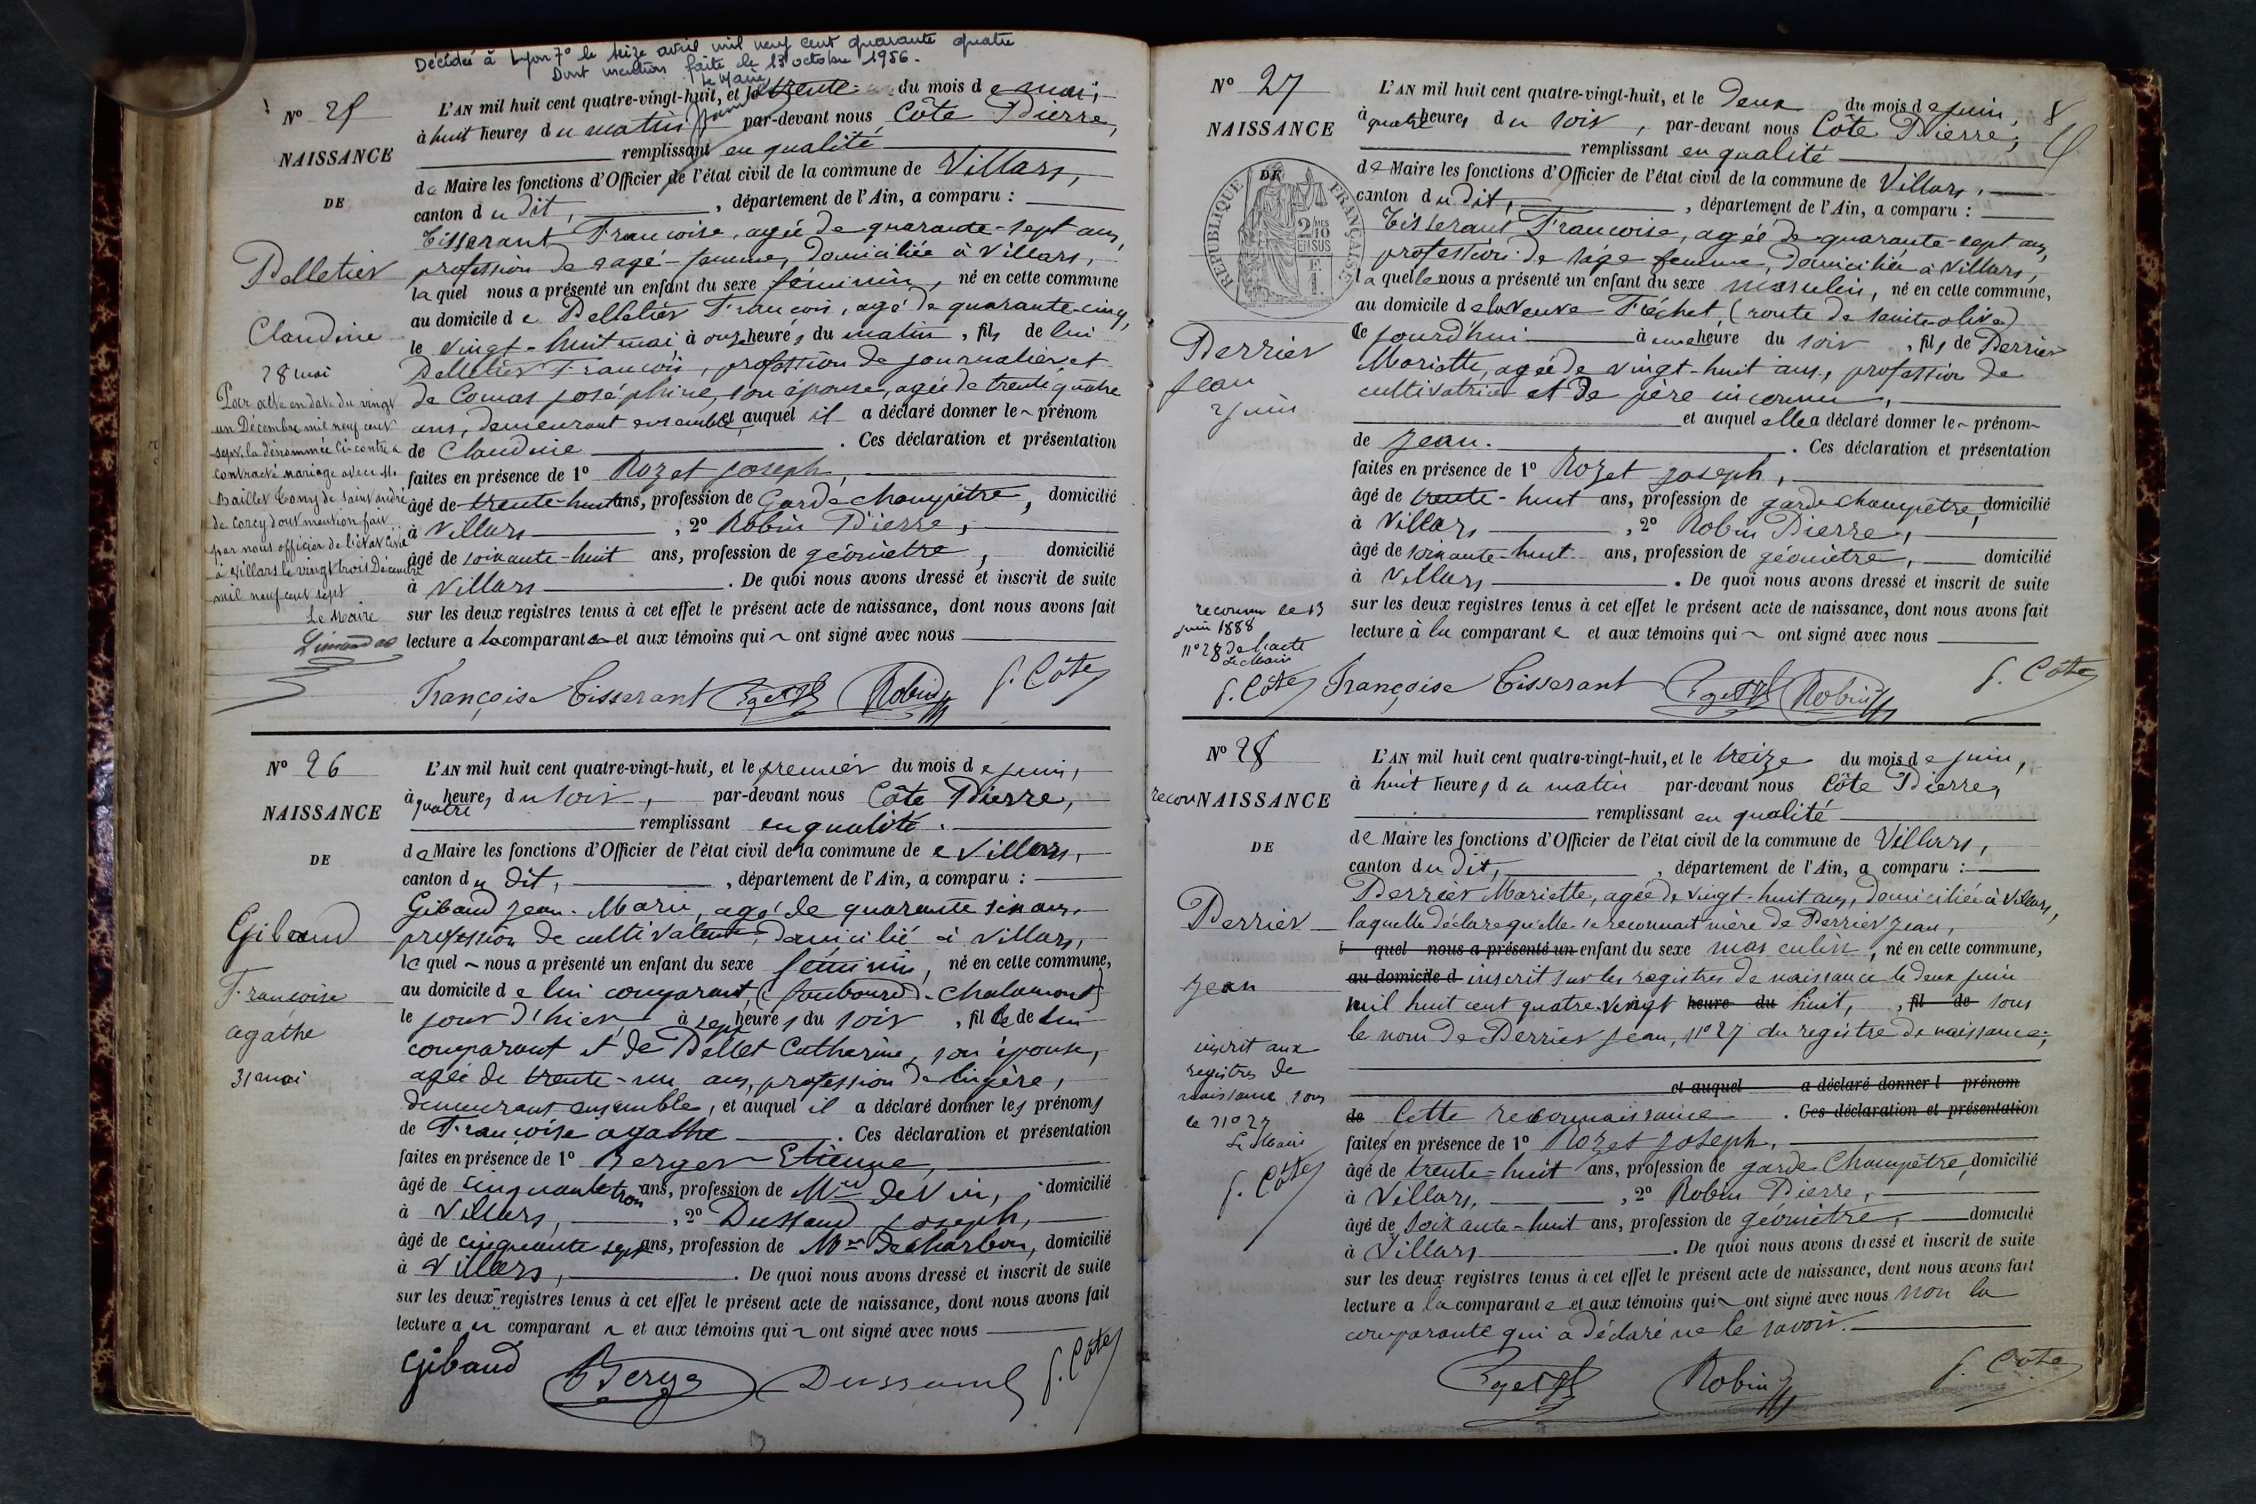 Décédée à Lyon 7e le seize avril mil neuf cent quarante quatre
Dont mention faite le 13 octobre 1956.
Le Maire
N° 25
NAISSANCE
DE
Pelletier
Claudine
28 mai
Par acte en date du vingt
un Décembre mil neuf cent
sept, la dénommée ci-contre a
contracté mariage avec M.
Baillet Tony de Saint André
de Corcy dont mention fait
par nous officier de l'état civil
à Villars le vingt trois Décembre
mil neuf cent sept
Le Maire
L'AN mil huit cent quatre-vingt-huit, et le trente du mois de mai,
à huit heures du matin par-devant nous Côte Pierre,
remplissant en qualité
de Maire les fonctions d'Officier de l'état civil de la commune de Villars,
canton du dit, , département de l'Ain, a comparu :
Tisserant Francoise, agée de quarante-sept ans,
profession de sage-femme, domiciliée à Villars,
laquel nous a présenté un enfant du sexe féminin, né en cette commune
au domicile de Pelletier Francois, agé de quarante-cinq,
le vingt-huit mai à onze heures du matin, fils de lui
Pelletier Francois, profession de journalier et
de Comas joséphine, son épouse, agée de trente quatre
ans, demeurant ensemble, et auquel il a déclaré donner le prénom
de Claudine . Ces déclaration et présentation
faites en présence de 1° Rozet joseph,
âgé de trente-huit ans, profession de Garde champêtre, domicilié
à Villars , 2° Robin Pierre,
âgé de soixante-huit ans, profession de géomètre, domicilié
à Villars . De quoi nous avons dressé et inscrit de suite
sur les deux registres tenus à cet effet le présent acte de naissance, dont nous avons fait
lecture a la comparante et aux témoins qui ont signé avec nous
Françoise Tisserant Rozet Robin P. Côte
N° 26
NAISSANCE
DE
Gibaud
Francoise
agathe
31 mai
L'AN mil huit cent quatre-vingt-huit, et le premier du mois de juin,
à quatre heures du soir, par-devant nous Côte Pierre,
remplissant en qualité
de Maire les fonctions d'Officier de l'état civil de la commune de Villars,
canton du dit, , département de l'Ain, a comparu :
Gibaud Jean-Marie, agé de quarante six ans,
profession de cultivateur, domicilié à Villars,
lequel nous a présenté un enfant du sexe féminin, né en cette commune,
au domicile de lui comparant, (faubourg Chalamont)
le jour d'hier, à sept heures du soir, fille de lui
comparant et de Pellet Catherine, son épouse,
agée de trente-un ans, profession de lingère,
demeurant ensemble, et auquel il a déclaré donner les prénoms
de Francoise agathe . Ces déclaration et présentation
faites en présence de 1° Berger Etienne,
âgé de cinquante trois ans, profession de Md de vin, domicilié
à Villars, , 2° Dussaud joseph,
âgé de cinquante sept ans, profession de Md de charbon, domicilié
à Villars, . De quoi nous avons dressé et inscrit de suite
sur les deux registres tenus à cet effet le présent acte de naissance, dont nous avons fait
lecture au comparant et aux témoins qui ont signé avec nous
Gibaud Berger Dussaud P. Côte
N° 27
NAISSANCE
DE
REPUBLIQUE FRANÇAISE
2/10 EN SUS
Perrier
Jean
2 juin
reconnu le 13
juin 1888
n° 28 de l'acte
Le Maire
P. Côte
8
L'AN mil huit cent quatre-vingt-huit, et le deux du mois de juin,
à quatre heures du soir, par-devant nous Côte Pierre,
remplissant en qualité
de Maire les fonctions d'Officier de l'état civil de la commune de Villars,
canton du dit, , département de l'Ain, a comparu :
Tisserant Francoise, agée de quarante-sept ans,
profession de sage femme, domiciliée à Villars,
laquelle nous a présenté un enfant du sexe masculin, né en cette commune,
au domicile de la Veuve Fréchet (route de sainte-olive)
ce jourd'hui à une heure du soir, fils de Perrier
Mariette, agée de vingt-huit ans, profession de
cultivatrice et de père inconnu,
et auquel elle a déclaré donner le prénom
de Jean. . Ces déclaration et présentation
faites en présence de 1° Rozet joseph,
âgé de trente-huit ans, profession de garde champêtre, domicilié
à Villars , 2° Robin Pierre,
âgé de soixante-huit ans, profession de géomètre, domicilié
à Villars . De quoi nous avons dressé et inscrit de suite
sur les deux registres tenus à cet effet le présent acte de naissance, dont nous avons fait
lecture à la comparante et aux témoins qui ont signé avec nous
Françoise Tisserant Rozet Robin P. Côte
N° 28
reconNAISSANCE
DE
Perrier
Jean
inscrit aux
registres de
naissance sous
le n° 27
Le Maire
P. Côte
L'AN mil huit cent quatre-vingt-huit, et le treize du mois de juin,
à huit heures du matin par-devant nous Côte Pierre,
remplissant en qualité
de Maire les fonctions d'Officier de l'état civil de la commune de Villars,
canton du dit, , département de l'Ain, a comparu :
Perrier Mariette, agée de vingt-huit ans, domiciliée à Villars,
laquelle déclare qu'elle se reconnait mère de Perrier Jean,
l quel nous a présenté un enfant du sexe masculin, né en cette commune,
au domicile d inscrit sur les registres de naissance le deux juin
mil huit cent quatre-vingt heure du huit, , fil de sous
le nom de Perrier Jean, n° 27 du registre de naissance;
et auquel a déclaré donner l prénom
de Cette reconnaissance . Ces déclaration et présentation
faites en présence de 1° Rozet joseph,
âgé de trente-huit ans, profession de garde champêtre, domicilié
à Villars, , 2° Robin Pierre,
âgé de soixante-huit ans, profession de géomètre, domicilié
à Villars . De quoi nous avons dressé et inscrit de suite
sur les deux registres tenus à cet effet le présent acte de naissance, dont nous avons fait
lecture a la comparante et aux témoins qui ont signé avec nous non la
comparante qui a déclaré ne le savoir.
Rozet Robin P. Côte